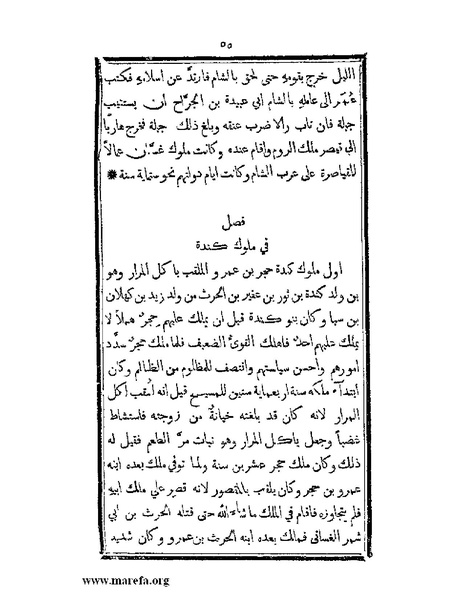 ٥٥
الليل خرج بقومه حتى لحق بالشام فارتدَّ عن اسلامهِ فكتب
عُمَر الى عاملهِ بالشام ابي عبيدة بن الجرَّاح ان يستتيب
جبلة فان تاب والا ضرب عنقه وبلغ ذلك جبلة فخرج هاربًا
الى قيصر ملك الروم واقام عنده وكانت ملوك غسَّان عمالًا
للقياصرة على عرب الشام وكانت ايام دولتهم نحو ستماية سنة *
فصل
في ملوك كندة
اولى ملوك كندة حجر بن عمرو الملقب باكل المرار وهو
بن ولد كندة بن ثور بن عفير بن الحرث من ولد زيد بن كهلان
بن سبا وكان بنو كندة قبل ان يملك عليهم حجرٌ هملًا لا
يملك عليهم احدٌ فاهلك القويُّ الضعيف فلما ملك حجرٌ سدَّد
امورهم واحسن سياستهم وانتصف للمظلوم من الظالم وكان
ابتدآء ملكه سنة اربعماية سنين للمسيح قيل انه لُقب اكل
المرار لانه كان قد بلغته خيانةٌ من زوجته فاستشاط
غضبًا وجعل ياكل المرار وهو نبات مرَّ الطعم فقيل له
ذلك وكان ملك حجر عشرين سنة ولما توفي ملك بعده ابنه
عمرو بن حجر وكان يلقب بالمقصور لانه قصر على ملك ابيهِ
فلم يتجاوزه فاقام في الملك ما شاء الله حتى قتله الحرث بن ابي
شمر الغساني فملك بعده ابنه الحرث بن عمرو وكان شديد
www.marefa.org